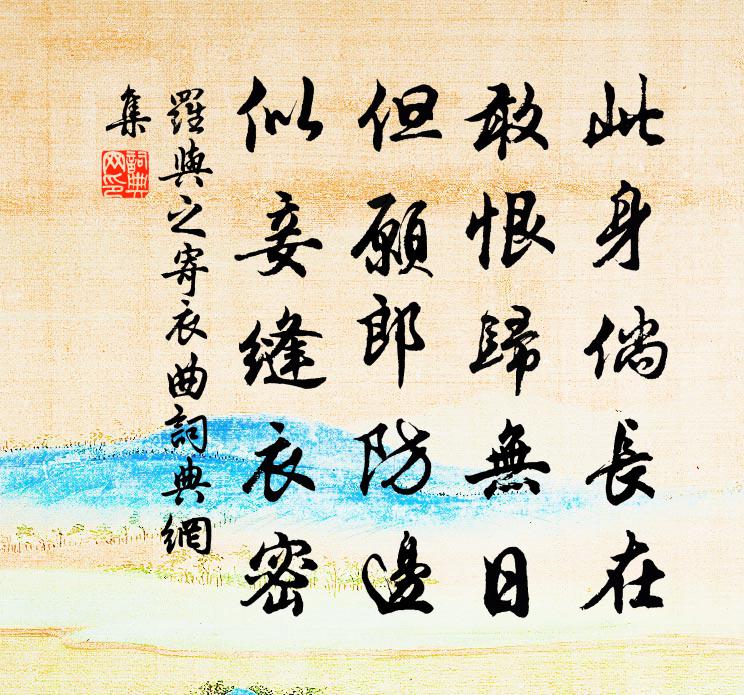 此身倘長在
敢恨歸無日
但願郎防邊
似妾縫衣密
羅與之寄衣曲詞典網
集
詞典
网印